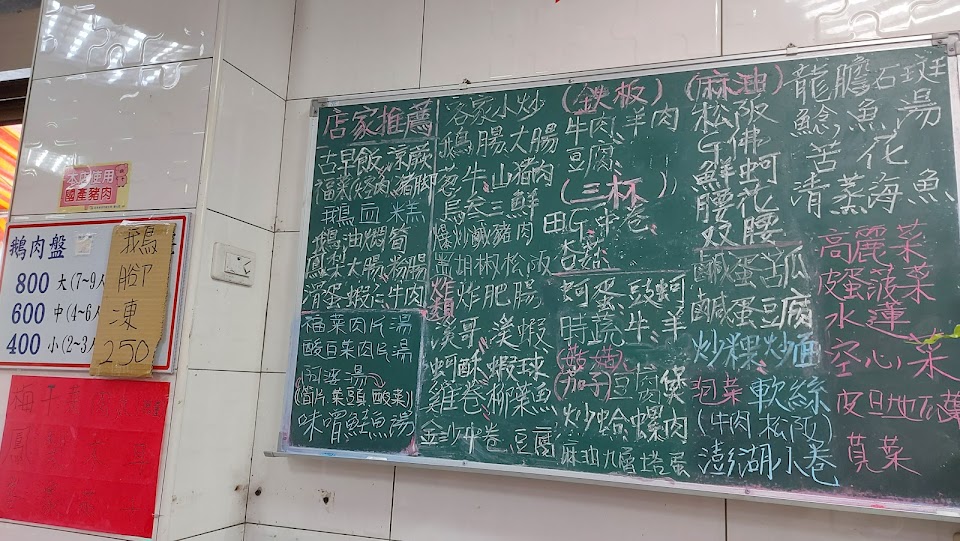 本店使用
國產豬肉
鵝肉盤
800 大(7~9人
600 中(4~6人
400 小(2~3人
鵝
腳
凍
250
梅干
店家推薦
古早飯,涼蕨
福菜焢肉,豬腳
鵝血糕
鵝油燜筍
鳳梨大腸,粉腸
滑蛋蝦仁牛肉
福菜肉片湯
酸白菜肉片湯
阿婆湯
(筍片菜頭酸菜)
味噌鮭魚湯
客家小炒
鵝腸大腸
蔥牛,山豬肉
烏參三鮮
爆炒鹹豬肉
黑胡椒松阪
炸類
炸肥腸
溪哥,溪蝦
蚵酥蝦球
雞卷,柳葉魚
金沙中卷,豆腐
(鉄板)
牛肉,羊肉
豆腐
(三杯)
田G,中卷
杏菇
蚵蛋,豉蚵
時蔬牛,羊
(茄子)豆腐煲
炒蛤,螺肉
麻油九層塔蛋
(麻油)
松阪
G佛
鮮蚵
腰花
双腰
鹹蛋苦瓜
鹹蛋豆腐
炒粿,炒麵
泡菜
(牛肉,松阪)
軟絲
澎湖小卷
龍膽石斑
鯰魚湯
苦花
清蒸海魚
高麗菜
皮蛋菠菜
水蓮
空心菜
皮旦地瓜葉
莧菜